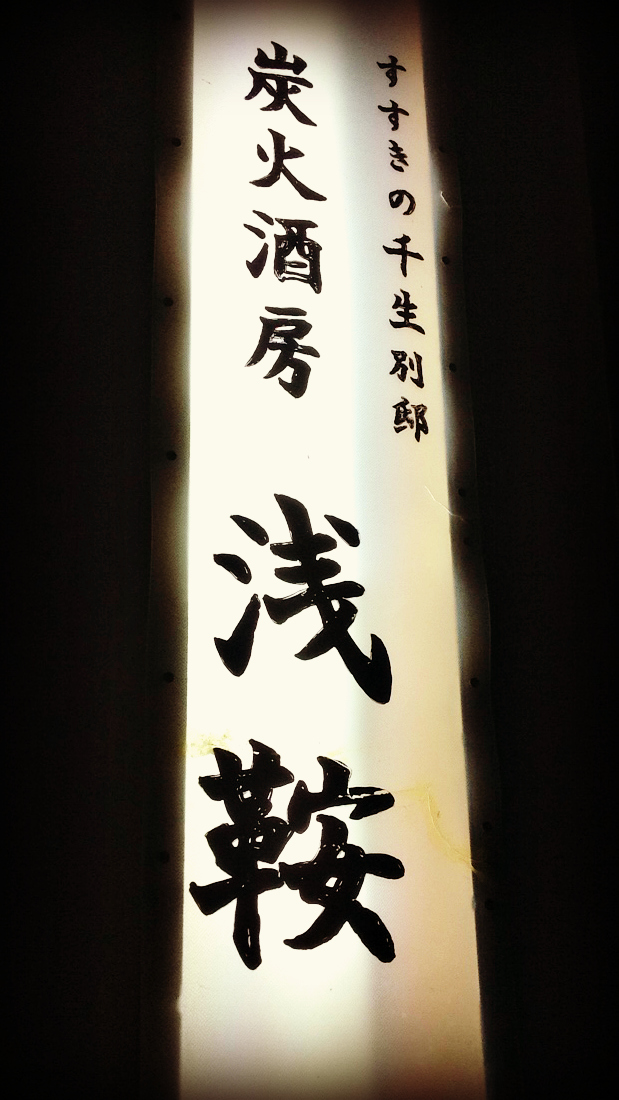 すすきの千生別邸
炭火酒房
浅鞍